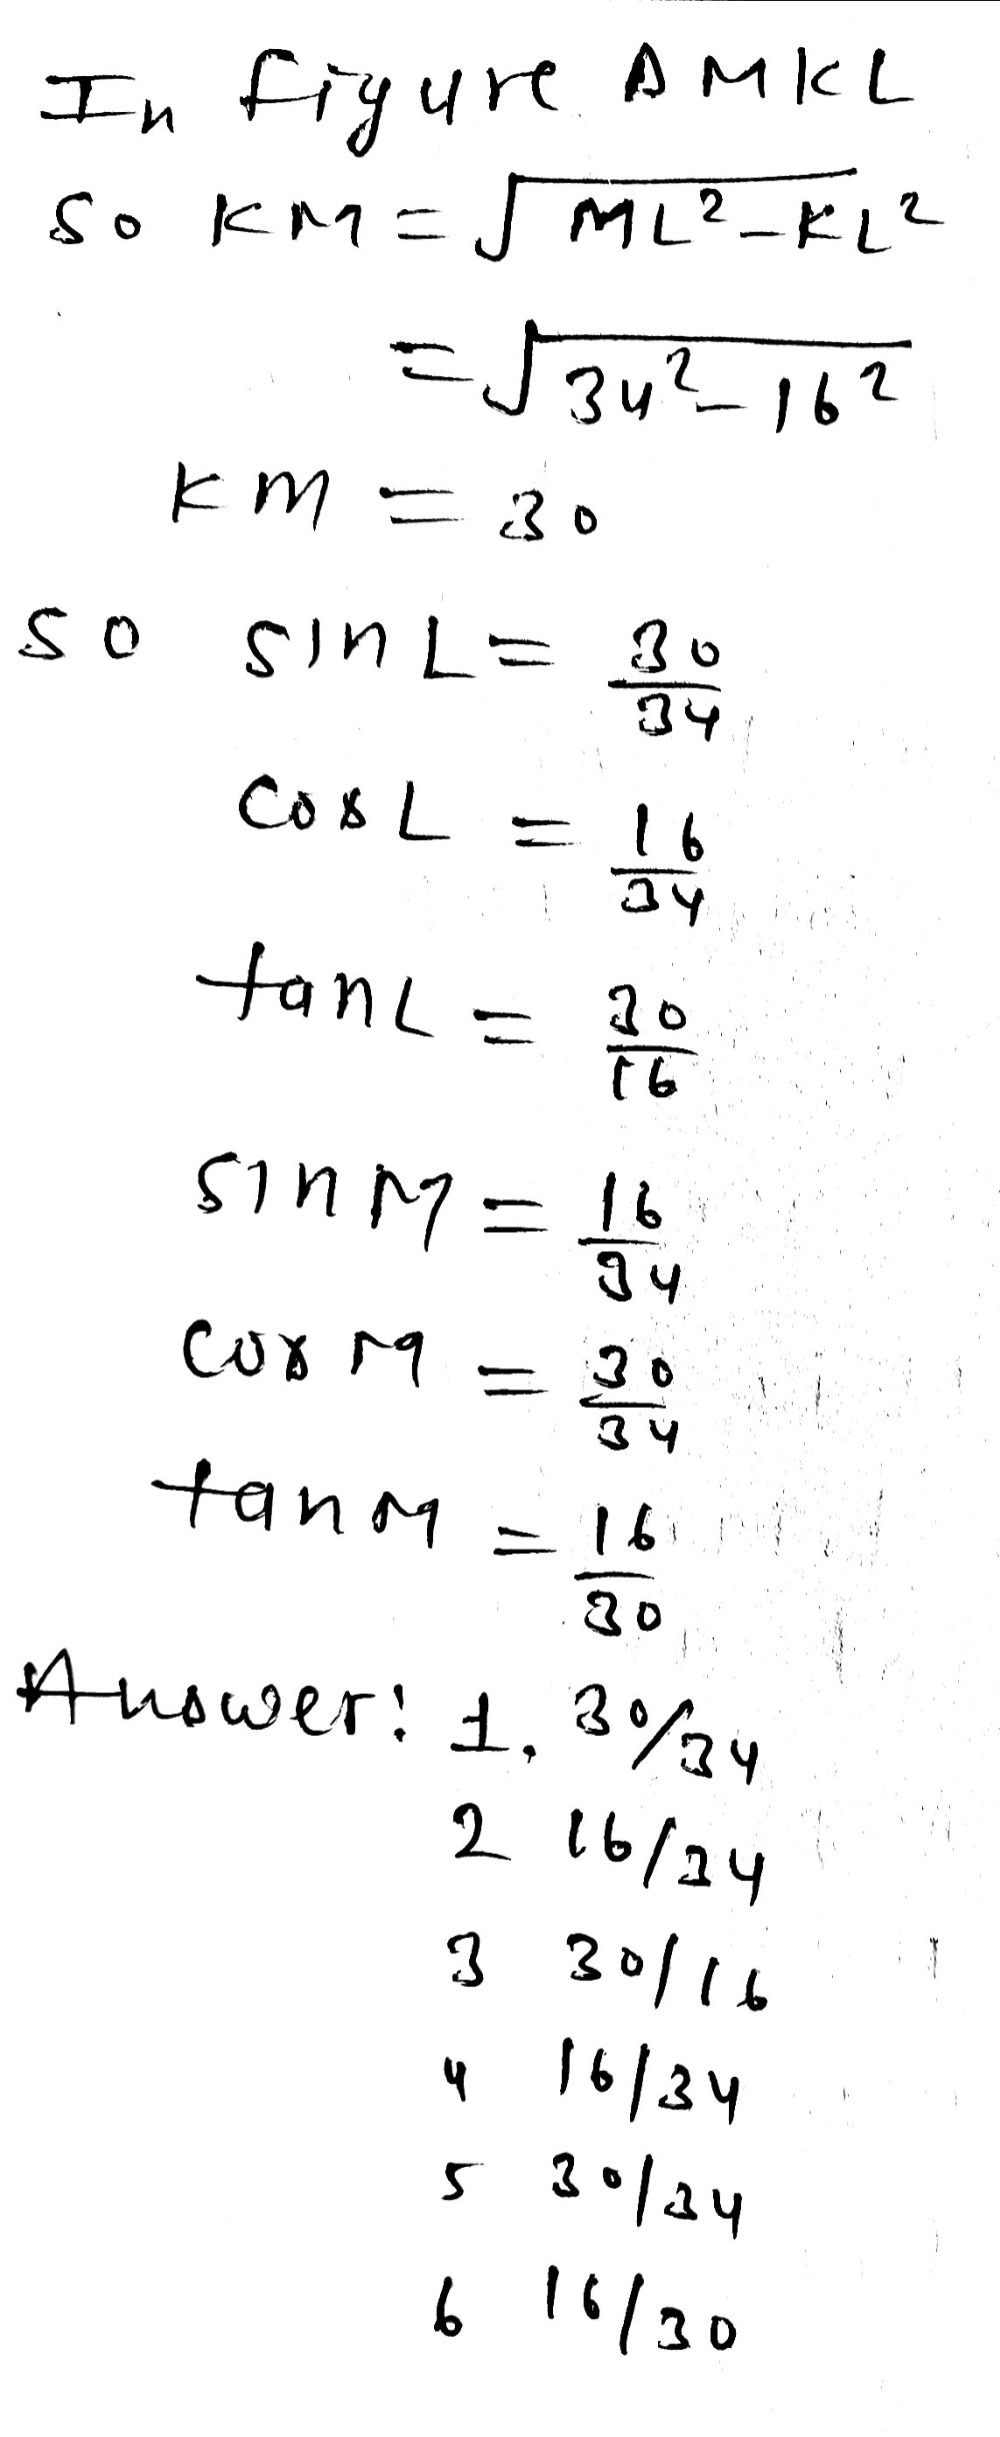 In figure ΔMKL
So KM = √ML²-KL²
= √34²-16²
KM = 30
So sinL = 30/34
cosL = 16/34
tanL = 30/16
sinM = 16/34
cosM = 30/34
tanM = 16/30
Answer: 1. 30/34
2 16/34
3 30/16
4 16/34
5 30/34
6 16/30